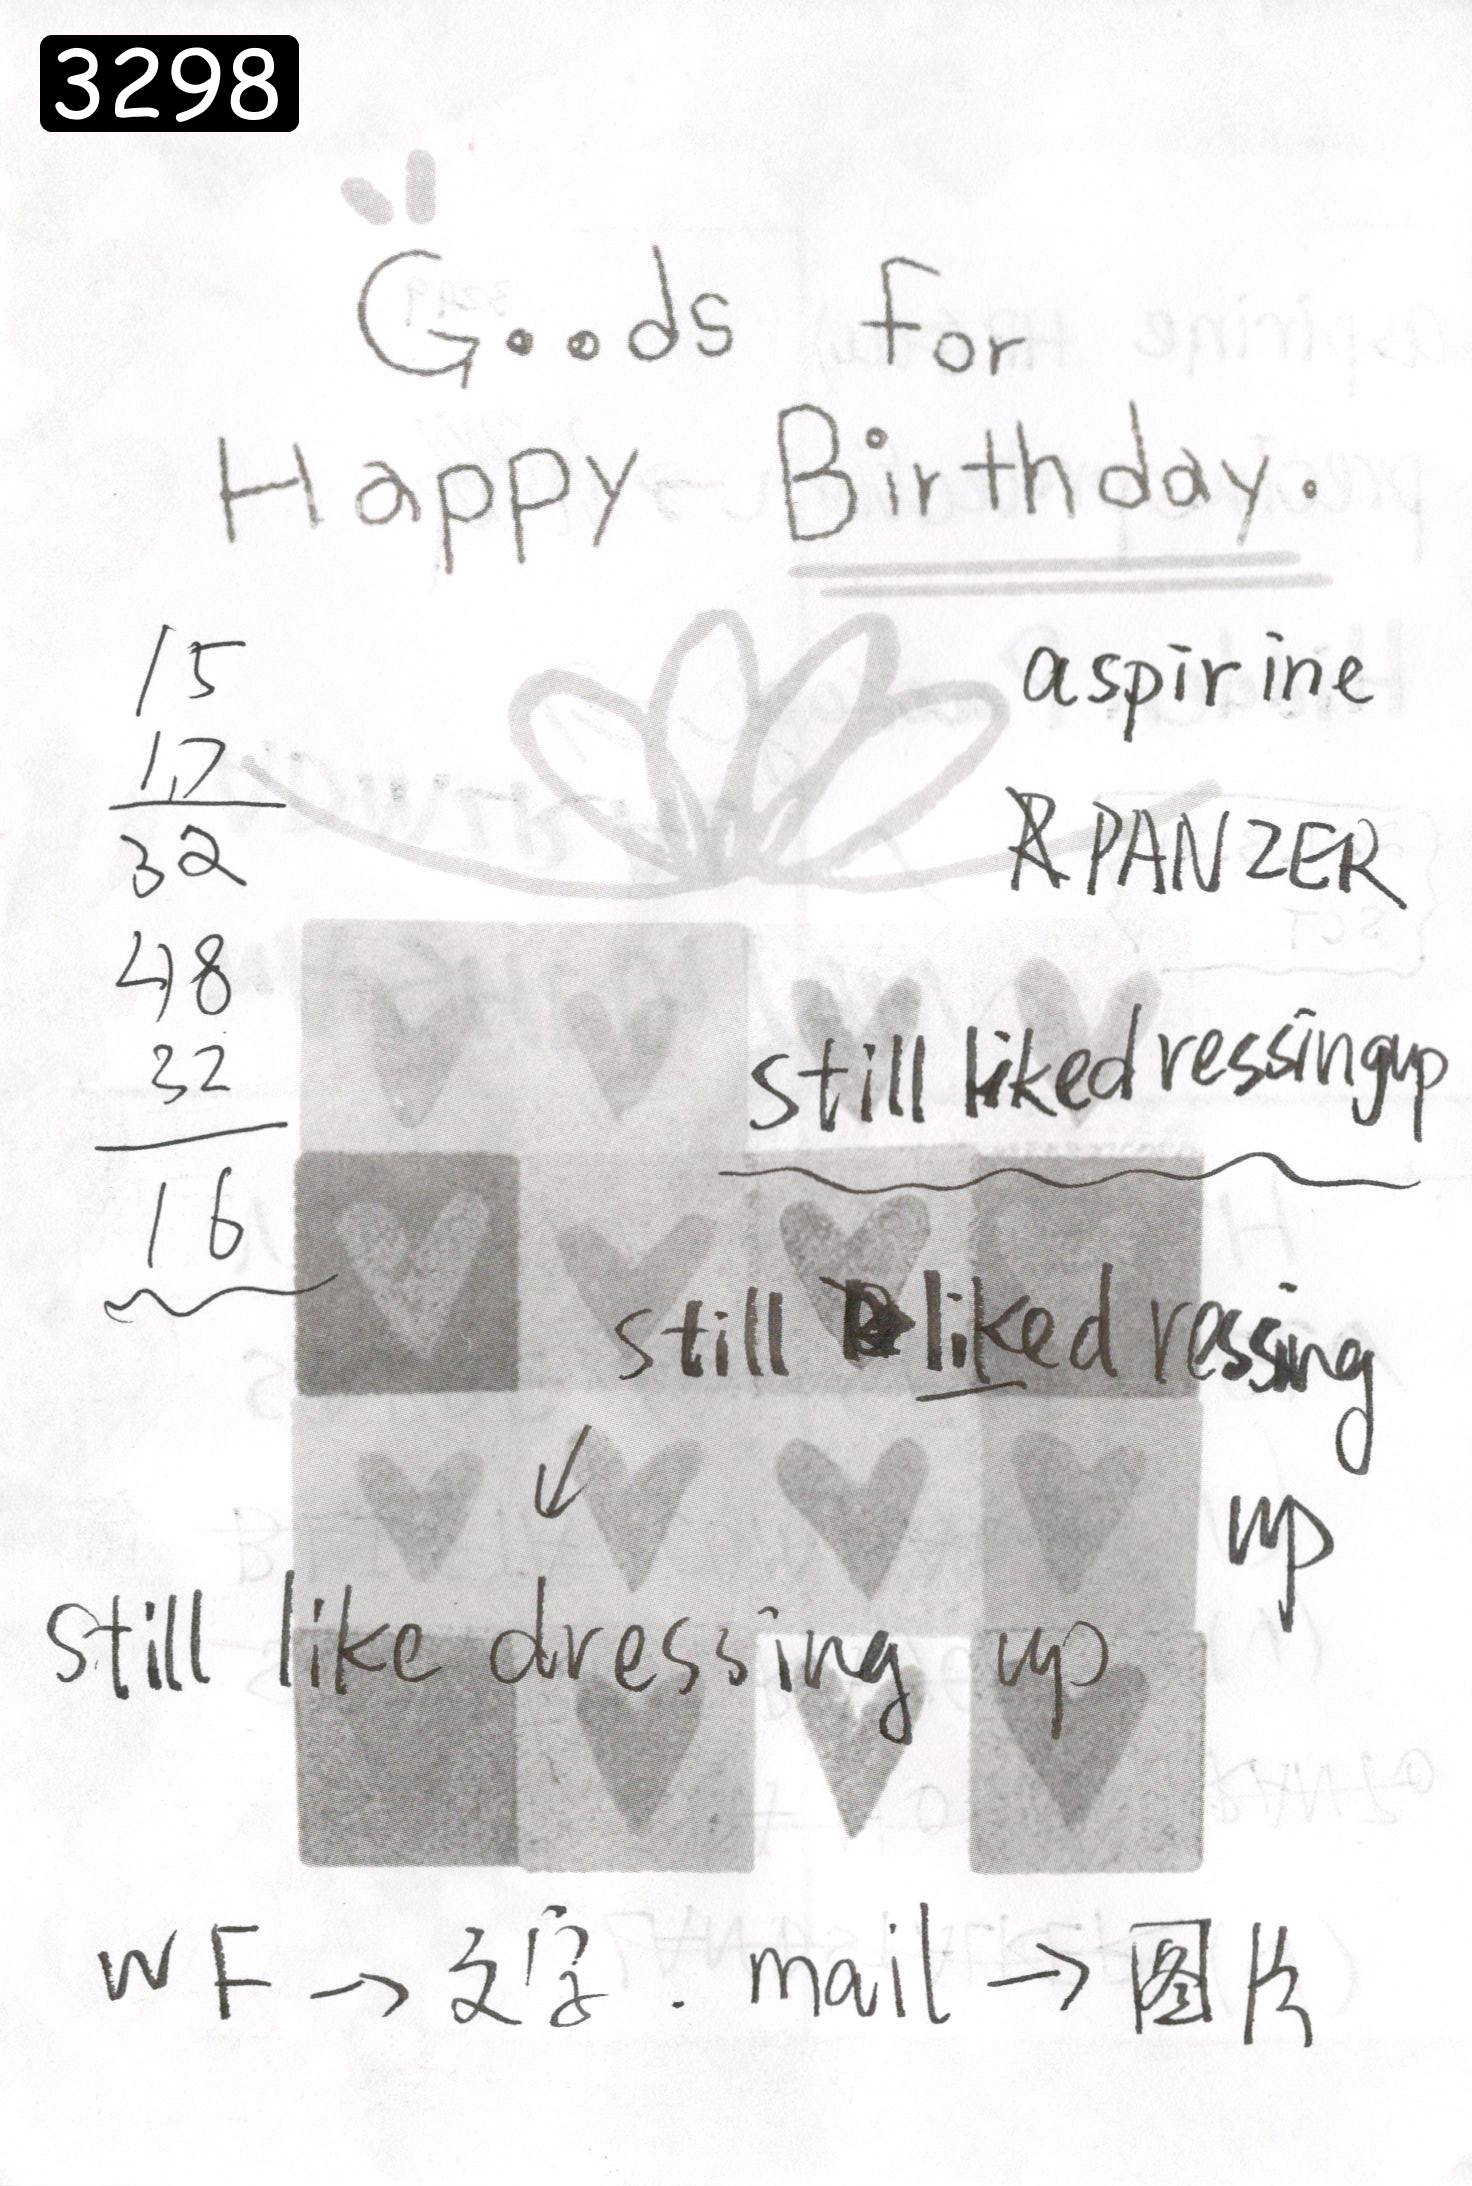 3298
Goods for
Happy Birthday.
15
17
32
48
32
16
aspirine
PANZER
still likedressingup
still likedressing
up
still like dressing up
WF → 文字. mail → 图片